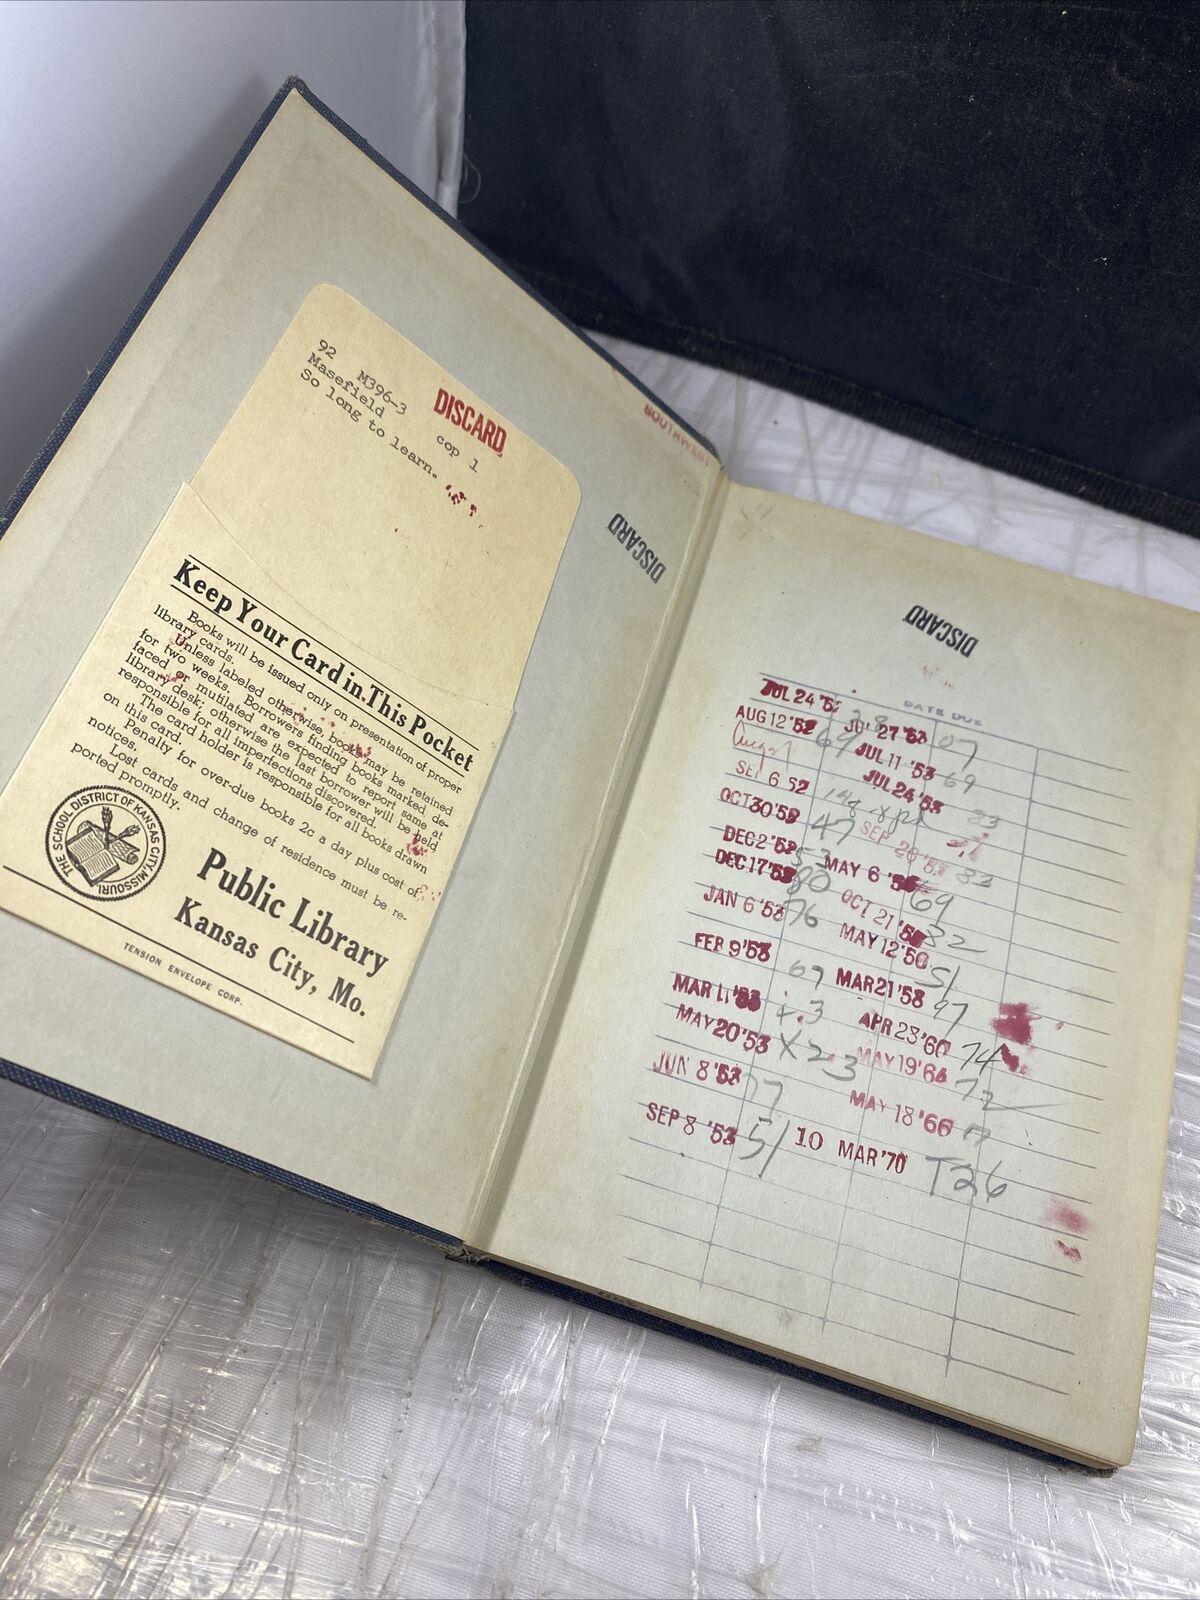 92 M396-3
Masefield cop 1
So long to learn.
DISCARD
Keep Your Card in This Pocket
Books will be issued only on presentation of proper
library cards.
Unless labeled otherwise, books may be retained
for two weeks. Borrowers finding books marked, de-
faced or mutilated are expected to report same at
library desk; otherwise the last borrower will be held
responsible for all imperfections discovered.
The card holder is responsible for all books drawn
on this card.
Penalty for over-due books 2c a day plus cost of
notices.
Lost cards and change of residence must be re-
ported promptly.
THE SCHOOL DISTRICT OF KANSAS CITY, MISSOURI
Public Library
Kansas City, Mo.
TENSION ENVELOPE CORP.
DISCARD
DISCARD
DATE DUE
JUL 24 '52
AUG 12 '52
SEP 6 52
OCT 30 '52
DEC 2 '52
DEC 17 '52
JAN 6 '53
FEB 9 '53
MAR 11 '53
MAY 20 '53 X23
JUN 8 '53 77
SEP 8 '53 51
JUL 27 '53 07
JUL 11 '53 69
JUL 24 '53
MAY 6 69
OCT 21 32
MAY 12 '56 51
MAR 21 '58 97
APR 28 '60 74
MAY 19 '64 72
MAY 18 '66 17
10 MAR '70 T26